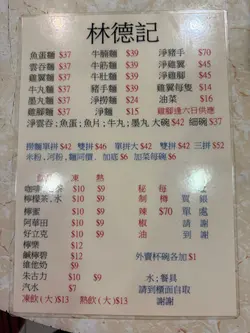 林德記
魚蛋麵 $37 牛腩麵 $39 淨豬手 $70
雲吞麵 $37 牛筋麵 $39 淨雞翼 $45
雞翼麵 $37 牛肚麵 $39 淨雞腳 $45
牛丸麵 $37 豬手麵 $39 雞翼每隻 $14
墨丸麵 $37 淨撈麵 $24 油菜 $16
雞腳麵 $37 淨麵 $15 雞腳逢六日供應
淨雲吞;魚蛋;魚片;牛丸;墨丸 大碗 $42 細碗 $37
撈麵單拼 $42 雙拼 $46 單拼大 $42 雙拼 $47 三拼 $52
米粉,河粉,麵同價。加底 $6 加菜每碗 $6
凍 熱
咖啡 $10 $9
檸檬茶、水 $10 $9
檸蜜 $10 $9
阿華田 $10 $9
好立克 $10 $9
檸樂 $12
鹹檸檬 $12
維他奶 $9
朱古力 $10 $9
汽水 $7
凍飲(大) $13 熱飲(大) $13
秘製辣椒油
每樽 $70
買單請到
貴客處謝謝
外賣杯碗各加 $1
水;餐具
請到櫃面自取
謝謝